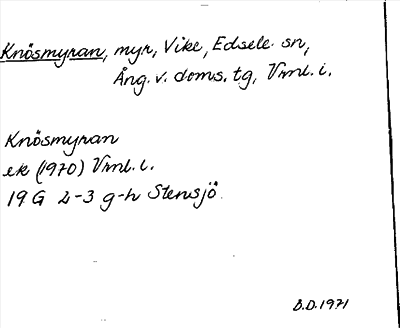 Knösmyran, myr, Vike, Edsele sn,
Ång. v. doms. tg, Vml. i.
Knösmyran
ek (1970) Vml. i.
19 G 2-3 g-h Stensjö
B.D. 1971